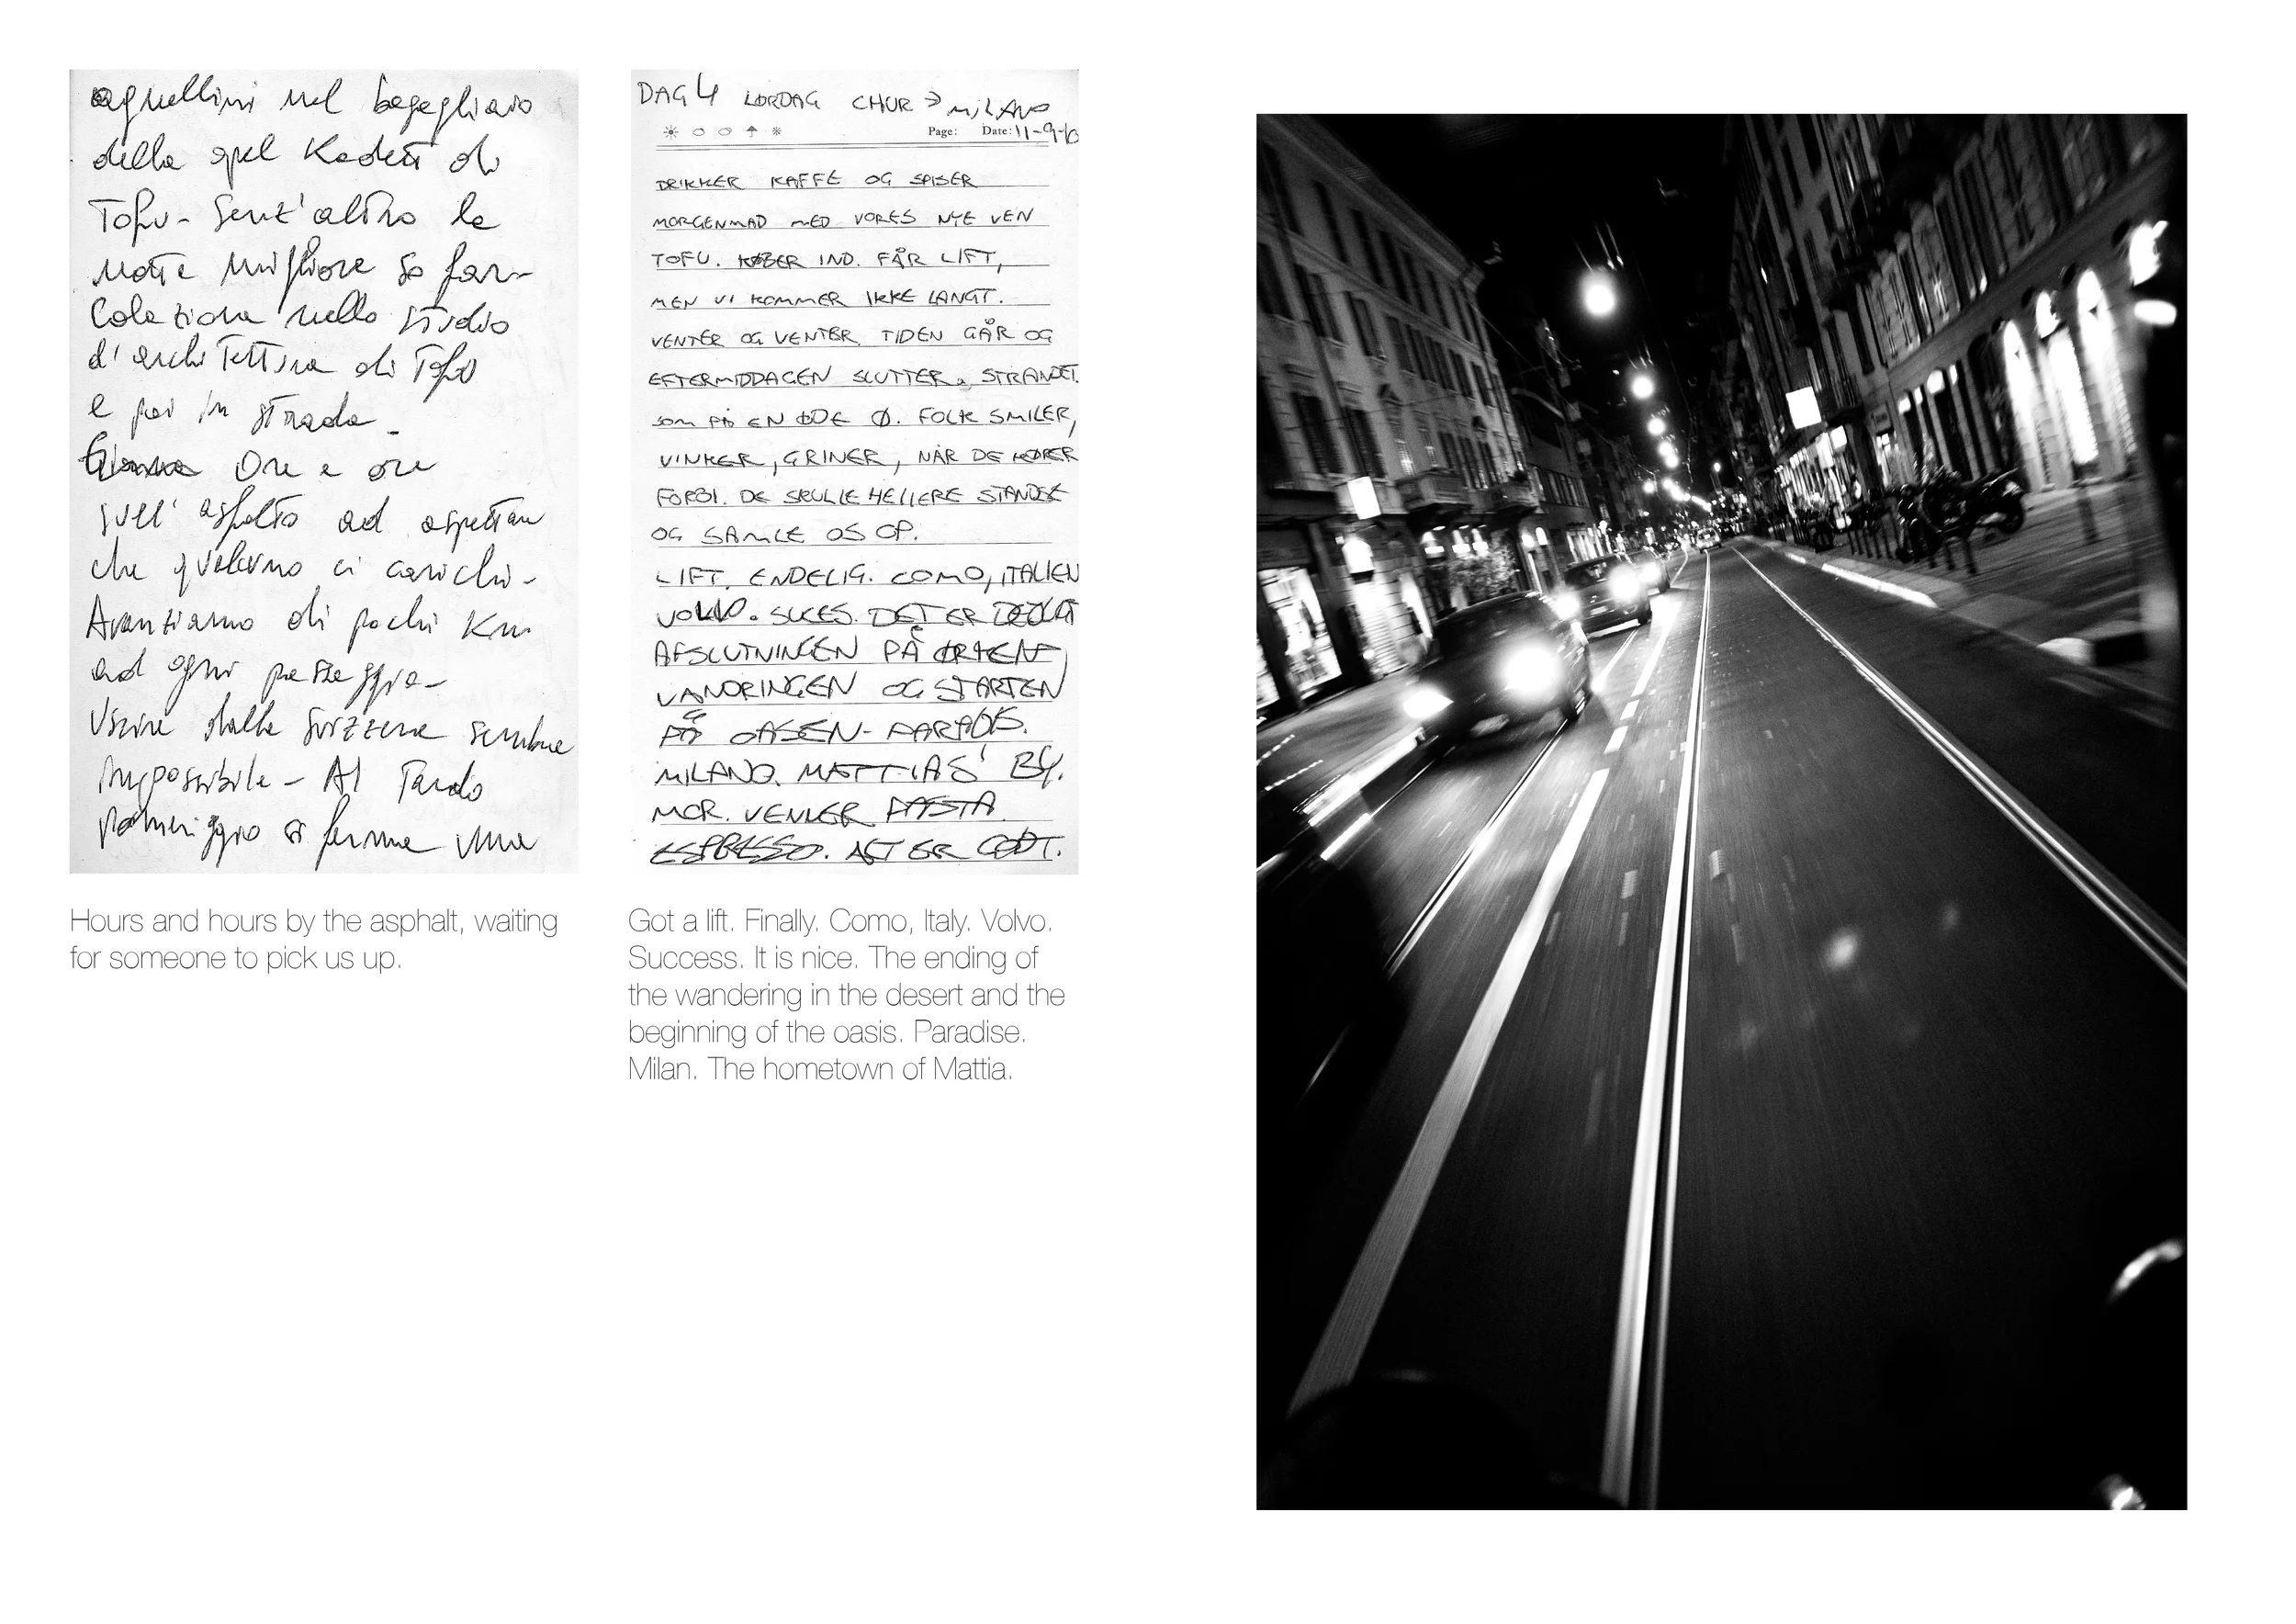 agnellini nel bagagliaio
della opel Kadett di
Tofu - Senz'altro la
notte migliore so far -
Colazione nello studio
d'architettura di Tofu
e poi in strada -
Ore e ore
sull'asfalto ad aspettare
che qualcuno ci carichi -
Avanziamo di pochi Km
ad ogni passaggio -
Uscire dalla Svizzera sembra
impossibile - Al Tardo
pomeriggio si ferma una
Hours and hours by the asphalt, waiting
for someone to pick us up.
DAG 4 LØRDAG CHUR → MILANO
Page: Date: 11-9-10
DRIKKER KAFFE OG SPISER
MORGENMAD MED VORES NYE VEN
TOFU. KØBER IND. FÅR LIFT,
MEN VI KOMMER IKKE LANGT.
VENTER OG VENTER TIDEN GÅR OG
EFTERMIDDAGEN SLUTTER. STRANDET.
SOM PÅ EN ØDE Ø. FOLK SMILER,
VINKER, GRINER, NÅR DE KØRER
FORBI. DE SKULLE HELLERE STANDSE
OG SAMLE OS OP.
LIFT. ENDELIG. COMO, ITALIEN
VOLVO. SUCES. DET ER DEJLIGT
AFSLUTNINGEN PÅ ØRKEN-
VANDRINGEN OG STARTEN
PÅ OASEN - PARADIS.
MILANO. MATTIAS' BY.
MOR. VENNER PASTA.
ESPRESSO. ALT ER GODT.
Got a lift. Finally. Como, Italy. Volvo.
Success. It is nice. The ending of
the wandering in the desert and the
beginning of the oasis. Paradise.
Milan. The hometown of Mattia.